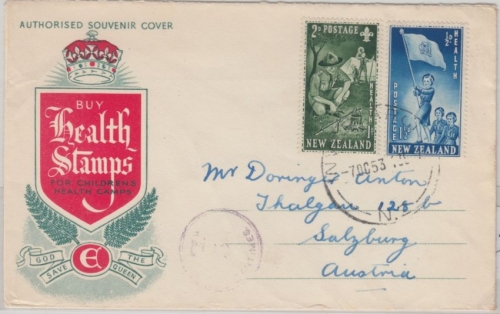 AUTHORISED SOUVENIR COVER
BUY
Health
Stamps
FOR CHILDREN'S
HEALTH CAMPS
GOD SAVE THE QUEEN
2D POSTAGE
HEALTH 1D
NEW ZEALAND
1½D POSTAGE
HEALTH ½D
NEW ZEALAND
-7OC53
N.Z.
Mr Doringer Anton
Thalgau 128 b
Salzburg
Austria